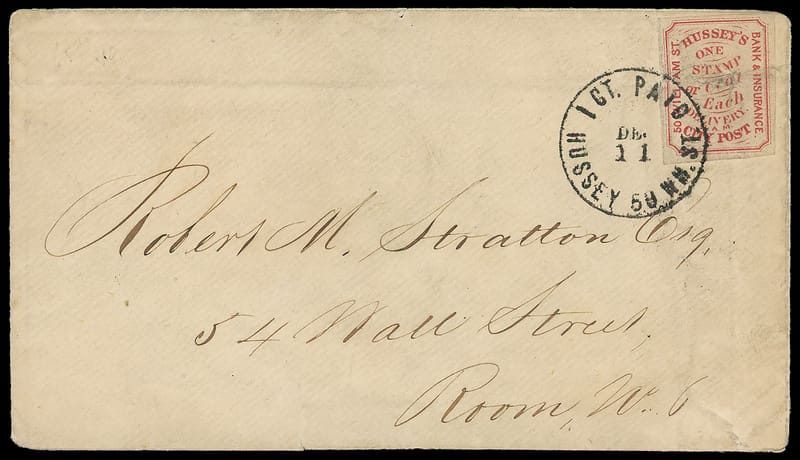 HUSSEY'S
ONE
STAMP
or Cent
Each
DELIVERY.
CITY POST
BANK & INSURANCE.
50 WILLIAM ST.
1 CT. PAID
DE.
11
HUSSEY 50 WM. ST.
Robert M. Stratton Esq.
54 Wall Street,
Room, No. 6